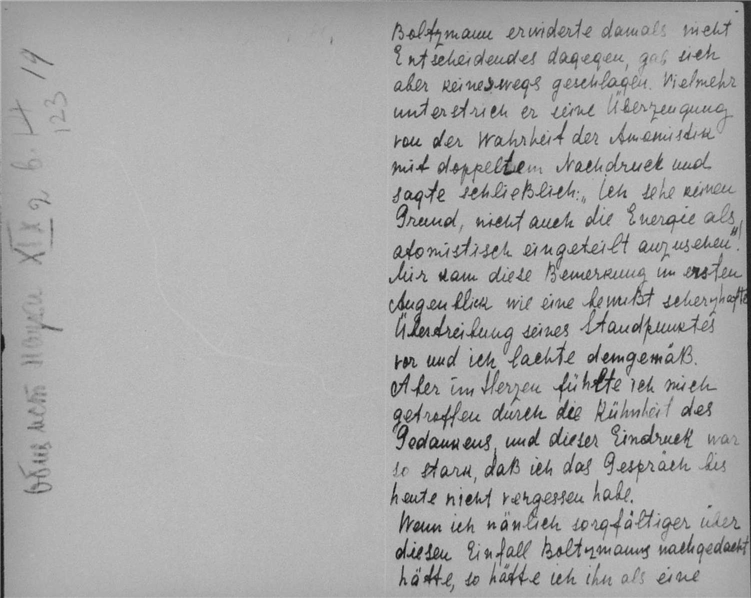 Boltzmann erwiderte damals nicht
Entscheidendes dagegen, gab sich
aber keineswegs geschlagen. Vielmehr
unterstrich er seine Überzeugung
von der Wahrheit der Atomistik
mit doppeltem Nachdruck und
sagte schließlich: „Ich sehe keinen
Grund, nicht auch die Energie als
atomistisch eingeteilt anzusehen“!
Mir kam diese Bemerkung im ersten
Augenblick wie eine bewußt scherzhafte
Übertreibung seines Standpunktes
vor und ich lachte demgemäß.
Aber im Herzen fühlte ich mich
getroffen durch die Kühnheit des
Gedankens, und dieser Eindruck war
so stark, daß ich das Gespräch bis
heute nicht vergessen habe.
Wenn ich nänlich sorgfältiger über
diesen Einfall Boltzmanns nachgedacht
hätte, so hätte ich ihn als eine
Общ ист Науки XIX 2 в. 4 19
123